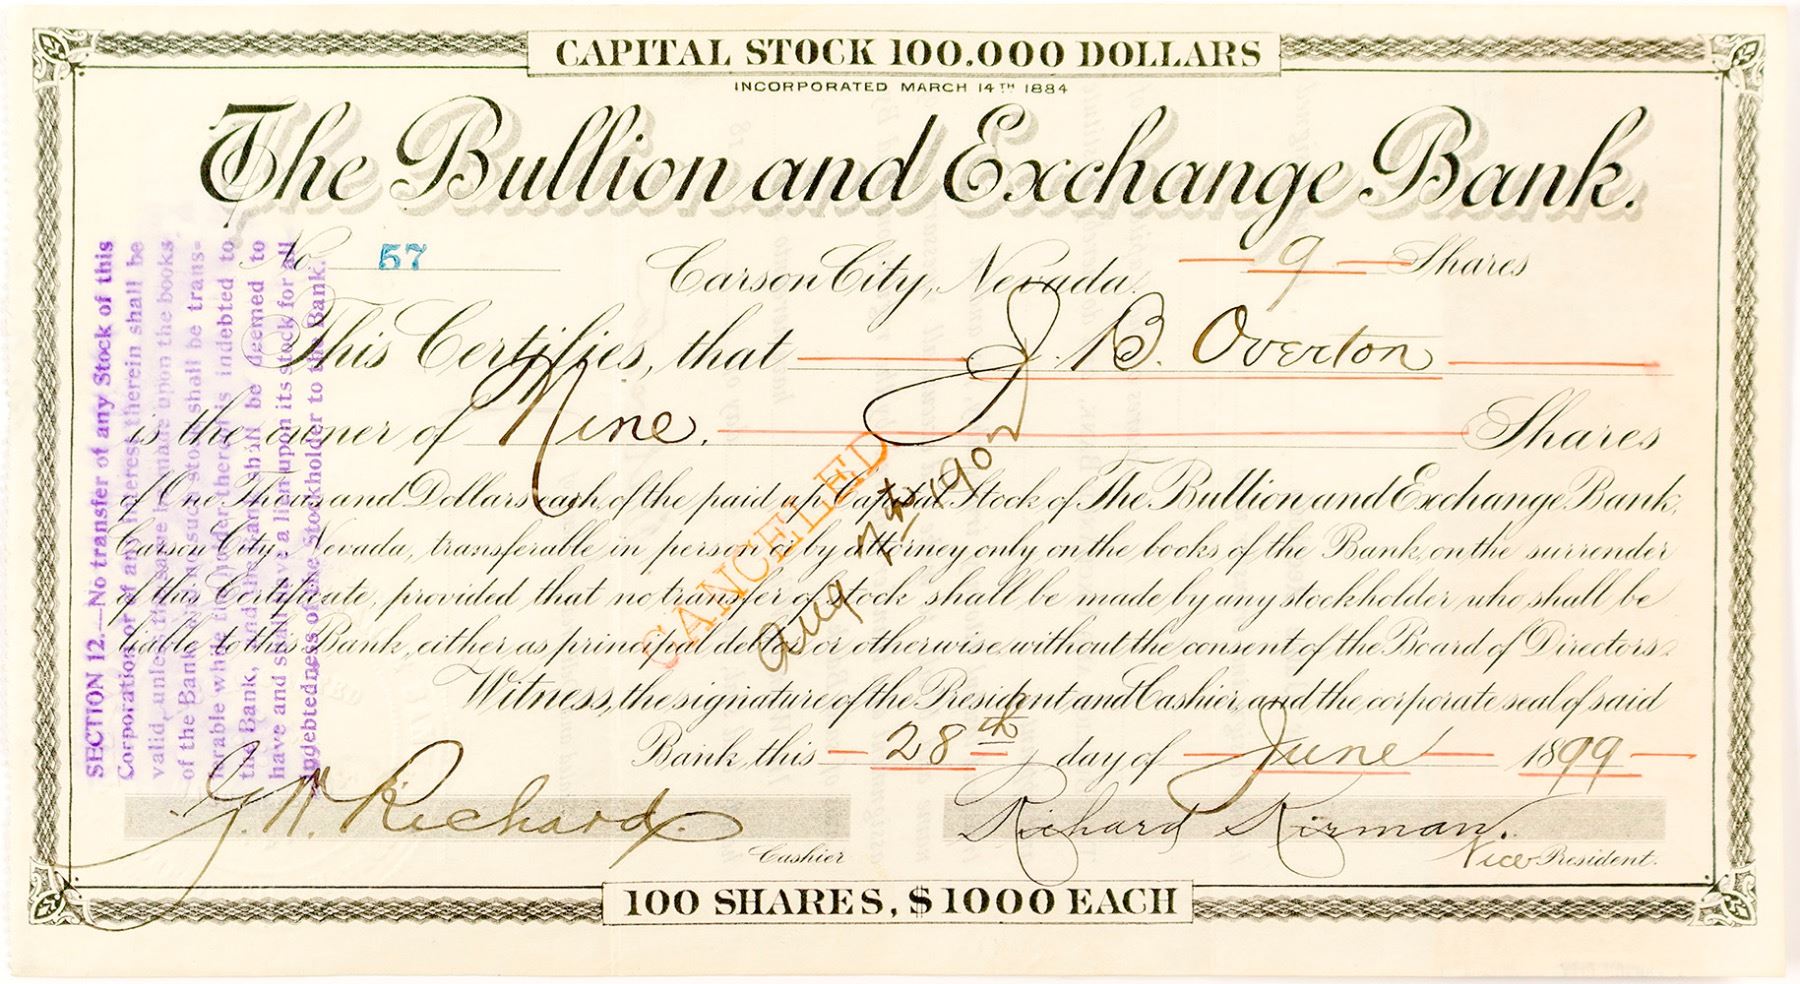 CAPITAL STOCK 100.000 DOLLARS
INCORPORATED MARCH 14TH 1884
The Bullion and Exchange Bank.
No. 57
Carson City, Nevada.
9 Shares
This Certifies, that J. B. Overton
is the owner of Nine. Shares
of One Thousand Dollars each, of the paid up Capital Stock of The Bullion and Exchange Bank,
Carson City, Nevada, transferable in person or by attorney only on the books of the Bank, on the surrender
of this Certificate, provided that no transfer of stock shall be made by any stockholder who shall be
liable to this Bank, either as principal debtor or otherwise without the consent of the Board of Directors.
Witness, the signature of the President and Cashier, and the corporate seal of said
Bank, this 28th day of June 1899
G. W. Richard
Cashier
Richard Kirman.
Vice President.
100 SHARES, $1000 EACH
SECTION 12.—No transfer of any Stock of this
Corporation, or of any interest therein shall be
valid, unless the same is made upon the books
of the Bank and no such stock shall be trans-
ferable while the holder thereof is indebted to
the Bank, and the Bank shall be deemed to
have and shall have a lien upon its stock for all
indebtedness of the Stockholder to the Bank.
CANCELED
Aug 7th 1902